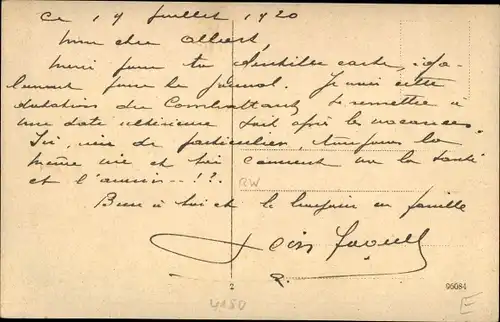 Ce 19 Juillet 1920
Mon cher Albert,
Merci pour ta gentille carte,
l'avant pour le Journal. Je vois cette
du Combattant se remettre à
une date ultérieure soit après les vacances.
Ici, rien de particulier, toujours la
même vie et toi comment va la santé
et l'amour --!?.
RW
Bien à toi et le bonjour en famille
2
96084
4180
E